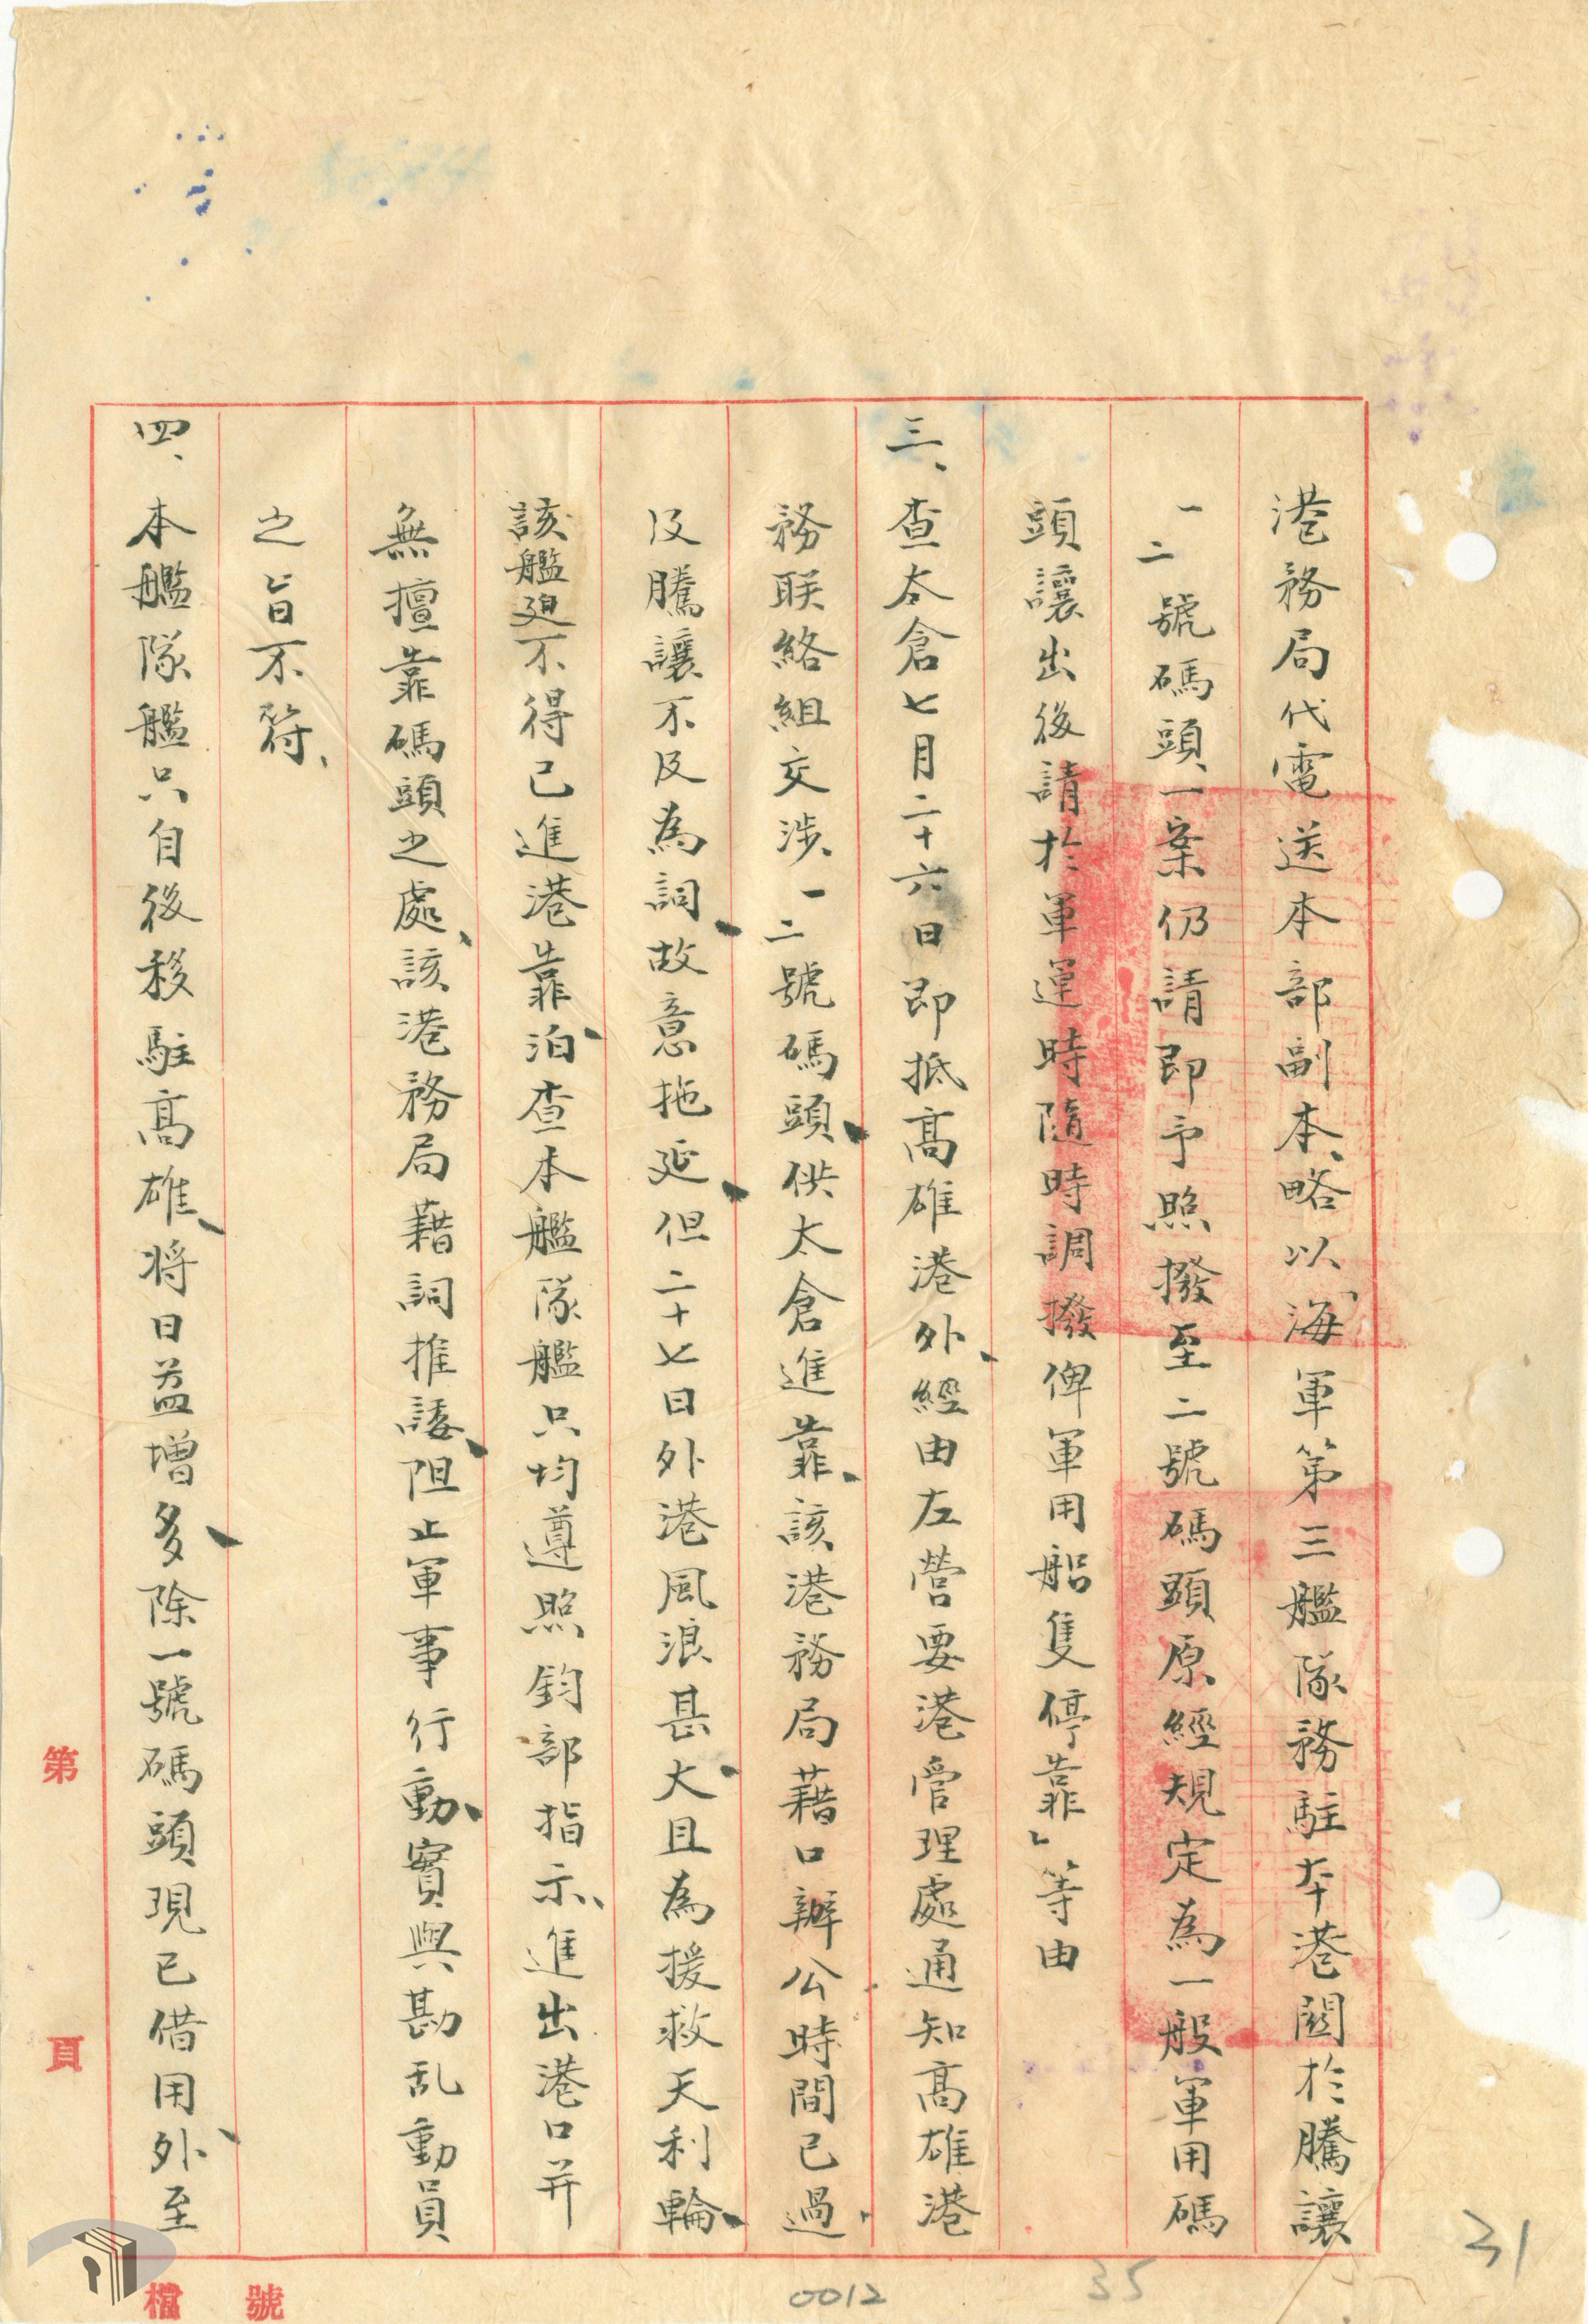 港務局代電送本部副本、略以「海軍第三艦隊務駐本港關於騰讓
一二號碼頭一案仍請即予照撥至二號碼頭原經規定為一般軍用碼
頭讓出後請於軍運時隨時調撥俾軍用船隻停靠」等由
三、查太倉七月二十六日即抵高雄港外、經由左營要港管理處通知高雄港
務联絡組交涉一二號碼頭、供太倉進靠、該港務局藉口辦公時間已過
及騰讓不及為詞、故意拖延、但二十七日外港風浪甚大、且為援救天利輪、
該艦廹不得已進港靠泊、查本艦隊艦只均遵照鈞部指示、進出港口并
無擅靠碼頭之處、該港務局藉詞推諉、阻止軍事行動、實與勘乱動員
之旨不符、
四、本艦隊艦只自後移駐高雄、将日益增多、除一號碼頭現已借用外、至
第 頁
檔 號
0012
35
31